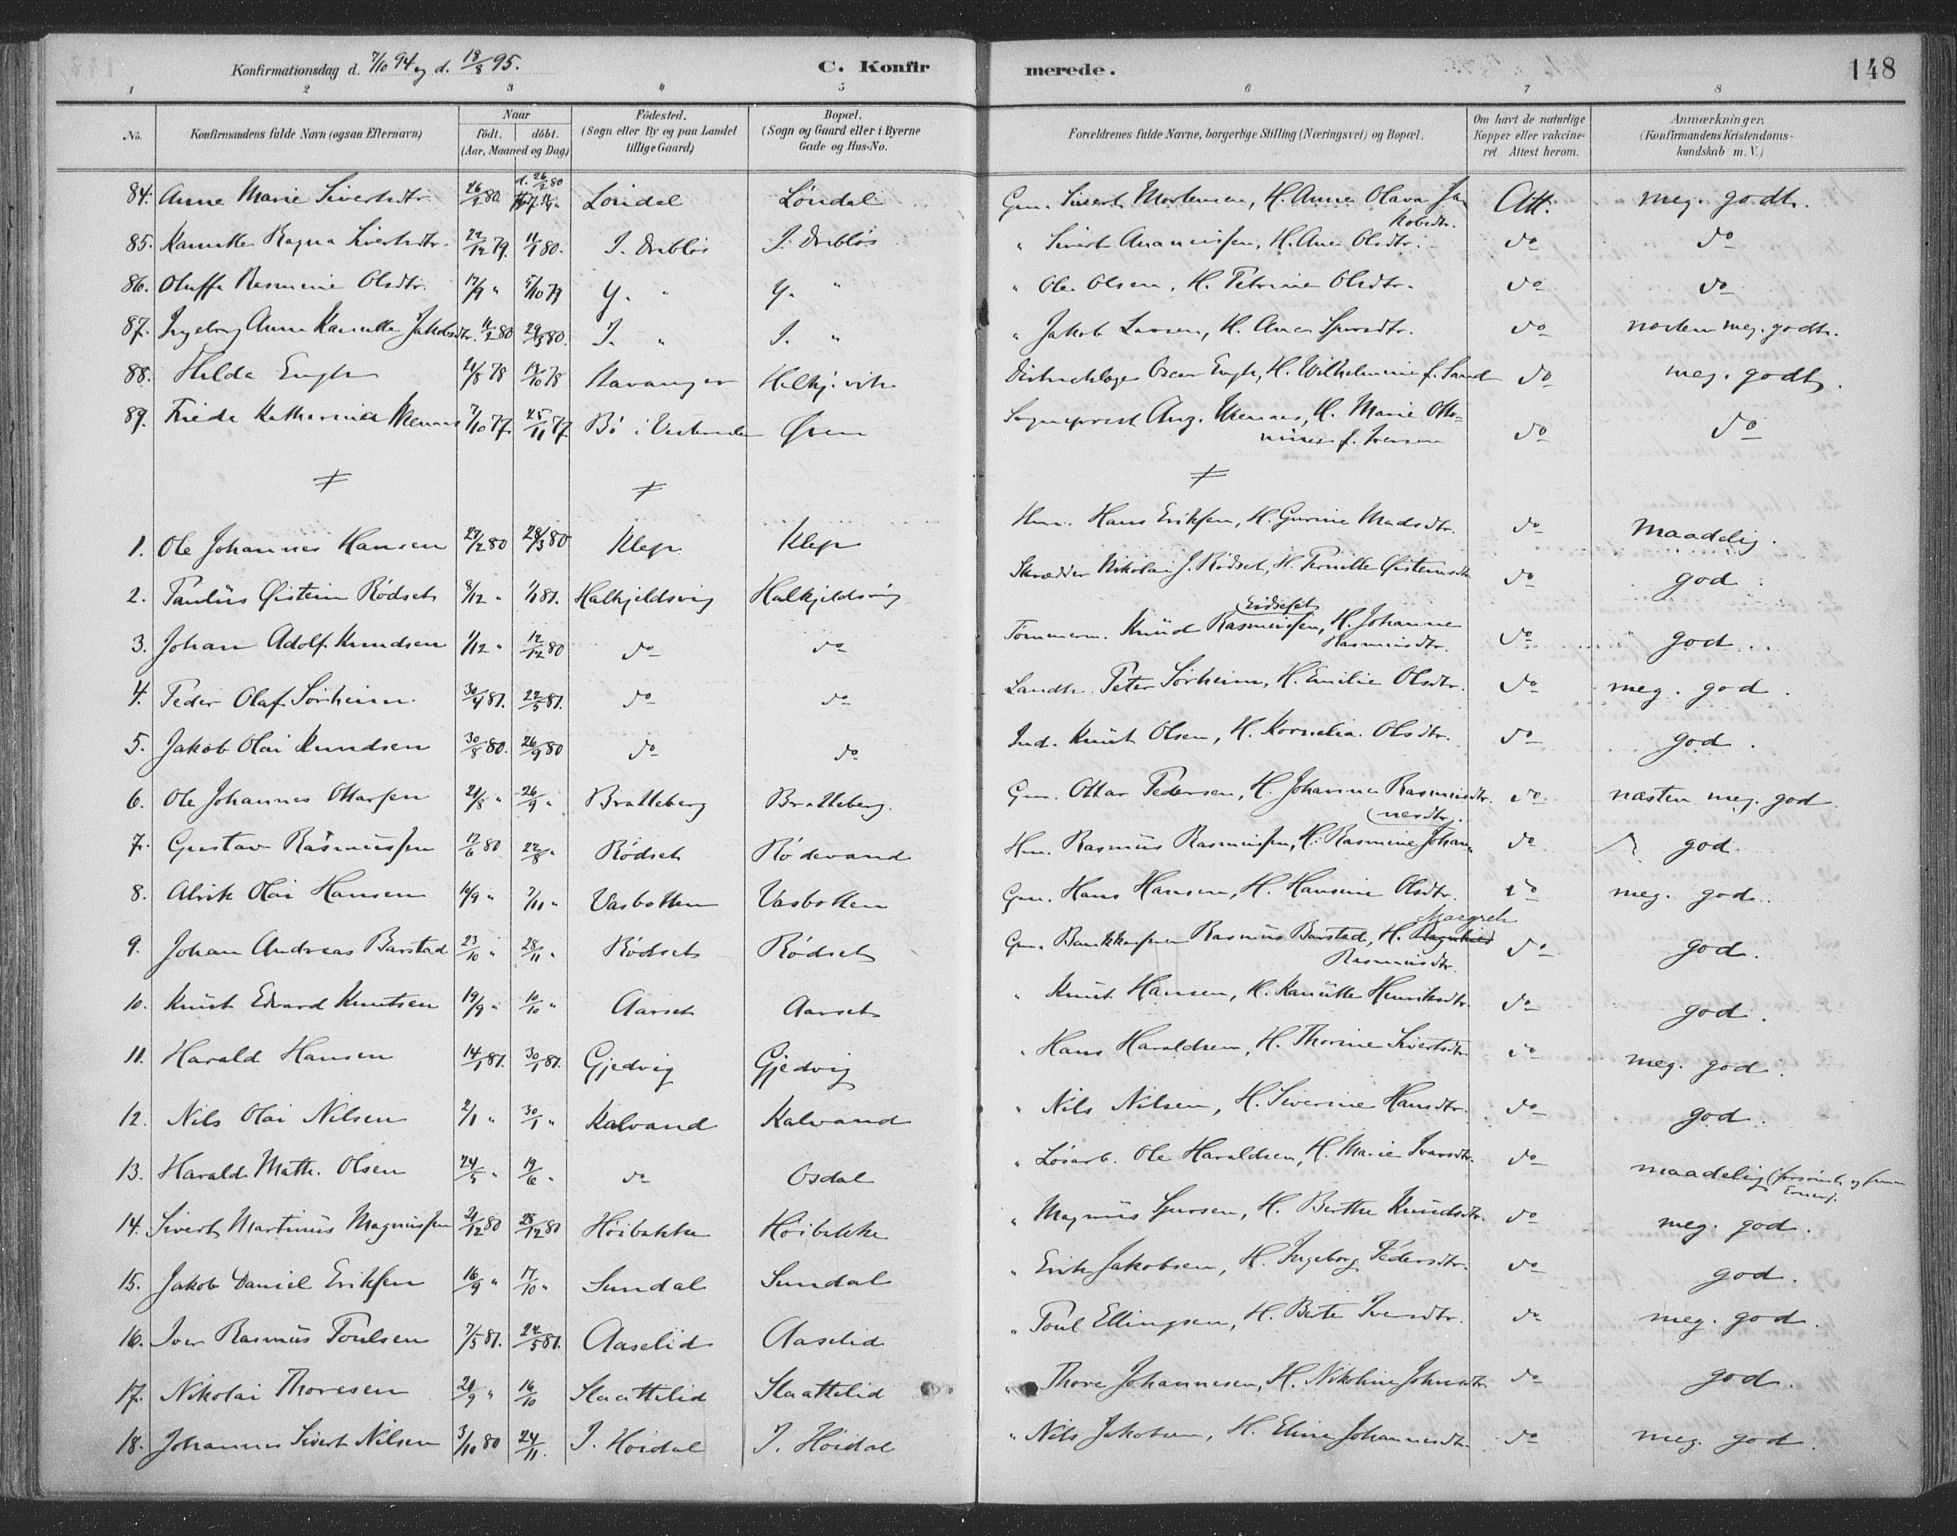 Konfirmationsdag d. 7/10 94 og d. 18/8 95. C. Konfirmerede. 148
1 2 3 4 5 6 7 8
No. Konfirmandens fulde Navn (ogsaa Efternavn) Naar født. døbt. (Aar, Maaned og Dag) Fødested. (Sogn eller By og paa Landet tillige Gaard) Bopæl. (Sogn og Gaard eller i Byerne Gade og Hus-No. Forældrenes fulde Navne, borgerlige Stilling (Næringsvei) og Bopæl. Om havt de naturlige Kopper eller vakcineret. Attest herom. Anmærkninger. (Konfirmandens Kristendomskundskab m. V.)
84. Anne Marie Sivertsdtr. 26/2 80. Løndal Løndal Gm. Sivert Mortensen, H. Anne Olava Jakobsdtr. Att. meg. godt.
85. Kanutte Ragna Sivertsdtr. 22/12 79. 11/1 80. I. Drabløs I. Drabløs " Sivert Ananiassen, H. Ane Olsdtr. do do
86. Oluffa Rasmine Olsdtr. 17/9 " 5/10 79 Y. " Y. " " Ole Olsen, H. Petrine Olsdtr. do do
87. Ingeborg Anne Kanutte Jakobsdtr. 11/2 80 29/3 80. I. " I. " " Jakob Larsen, H. Ane Sjursdtr. do næsten meg. godt.
88. Hilda Engh 21/8 78 13/10 78 Stavanger Halkj.vik Distriktslæge Oscar Engh, H. Wilhelmine f. Sand do meg. godt.
89. Friede Katharina 7/10 77. 25/11 77. Bø i Vesteraalen Ørsen Sogneprest Aug. H. Marie f. Iversen do do
1. Ole Johannes Hansen 27/2 80 28/3 80 Klep Klep Hm. Hans Eriksen, H. Gurine Madsdtr. do Maadelig.
2. Paulus Øisten Rødset 8/12 " 1/1 81. Halkjeldsvig Halkjeldsvig Skrædder Nikolai J. Rødset, H. Pernille Øistensdtr. do god.
3. Johan Adolf Knudsen 1/12 " 12/12 80 do do Tømmerm. Knud Rasmussen Eidset, H. Johanne Rasmusdtr. do god.
4. Peder Olaf Sørheim 30/4 81. 22/5 81. do do Landh. Peter Sørheim, H. Emilie Olsdtr. do meg. god.
5. Jakob Olai Knudsen 30/8 80. 26/9 80 do do Ind. Knut Olsen, H. Kornelia Olsdtr. do god.
6. Ole Johannes Ottarsen 21/8 " 26/9 " Bratteberg Bratteberg. Gm. Ottar Pedersen, H. Johanne Rasmusdtr. do næsten meg. god
7. Gustav Rasmussen 12/6 80 22/8 " Rødset Rødevand Hm. Rasmus Rasmussen, H. Rasmine Johannesdtr. do god.
8. Alrik Olai Hansen 14/9 " 7/11 " Vasbotten Vasbotten Gm. Hans Hansen, H. Hansine Olsdtr. do meg. god.
9. Johan Andreas Barstad 23/10 " 28/11 " Rødset Rødset Gm. Bankkasserer Rasmus Barstad, H. Ragnhild Margreth Rasmusdtr. do god.
10. Knut Edvard Knutsen 19/9 " 10/10 " Aarset Aarset " Knut Hansen, H. Kanutte Henriksdtr. do god.
11. Harald Hansen 14/1 81. 30/1 81. Gjedvig Gjedvig " Hans Haraldsen, H. Thorine Sivertsdtr. do meg. god.
12. Nils Olai Nilsen 2/1 " 30/1 " Kalvand Kalvand " Nils Nilsen, H. Severine Hansdtr. do god.
13. Harald Math. Olsen 24/5 " 19/6 " do Osdal " Løsarb. Ole Haraldsen, H. Marie Ivarsdtr. do maadelig
14. Sivert Martinus Magnussen 21/12 80 28/12 80 Høibakke Høibakke " Magnus Sjursen, H. Berthe Knudsdtr. do meg. god.
15. Jakob Daniel Eriksen 16/9 " 17/10 " Sundal Sundal " Erik Jakobsen, H. Ingeborg Pedersdtr. do god.
16. Iver Rasmus Poulsen 7/5 81. 22/5 81. Aaselid Aaselid " Poul Ellingsen, H. Berte Iversdtr. do meg. god.
17. Nikolai Thoresen 21/9 " 16/10 Slaattelid Slaattelid " Thore Johannesen, H. Nikoline Johnsdtr. do god.
18. Johannes Sivert Nilsen 3/10 80 24/11. I. Høidal I. Høidal " Nils Jakobsen, H. Eline Johannesdtr. do meg. god.